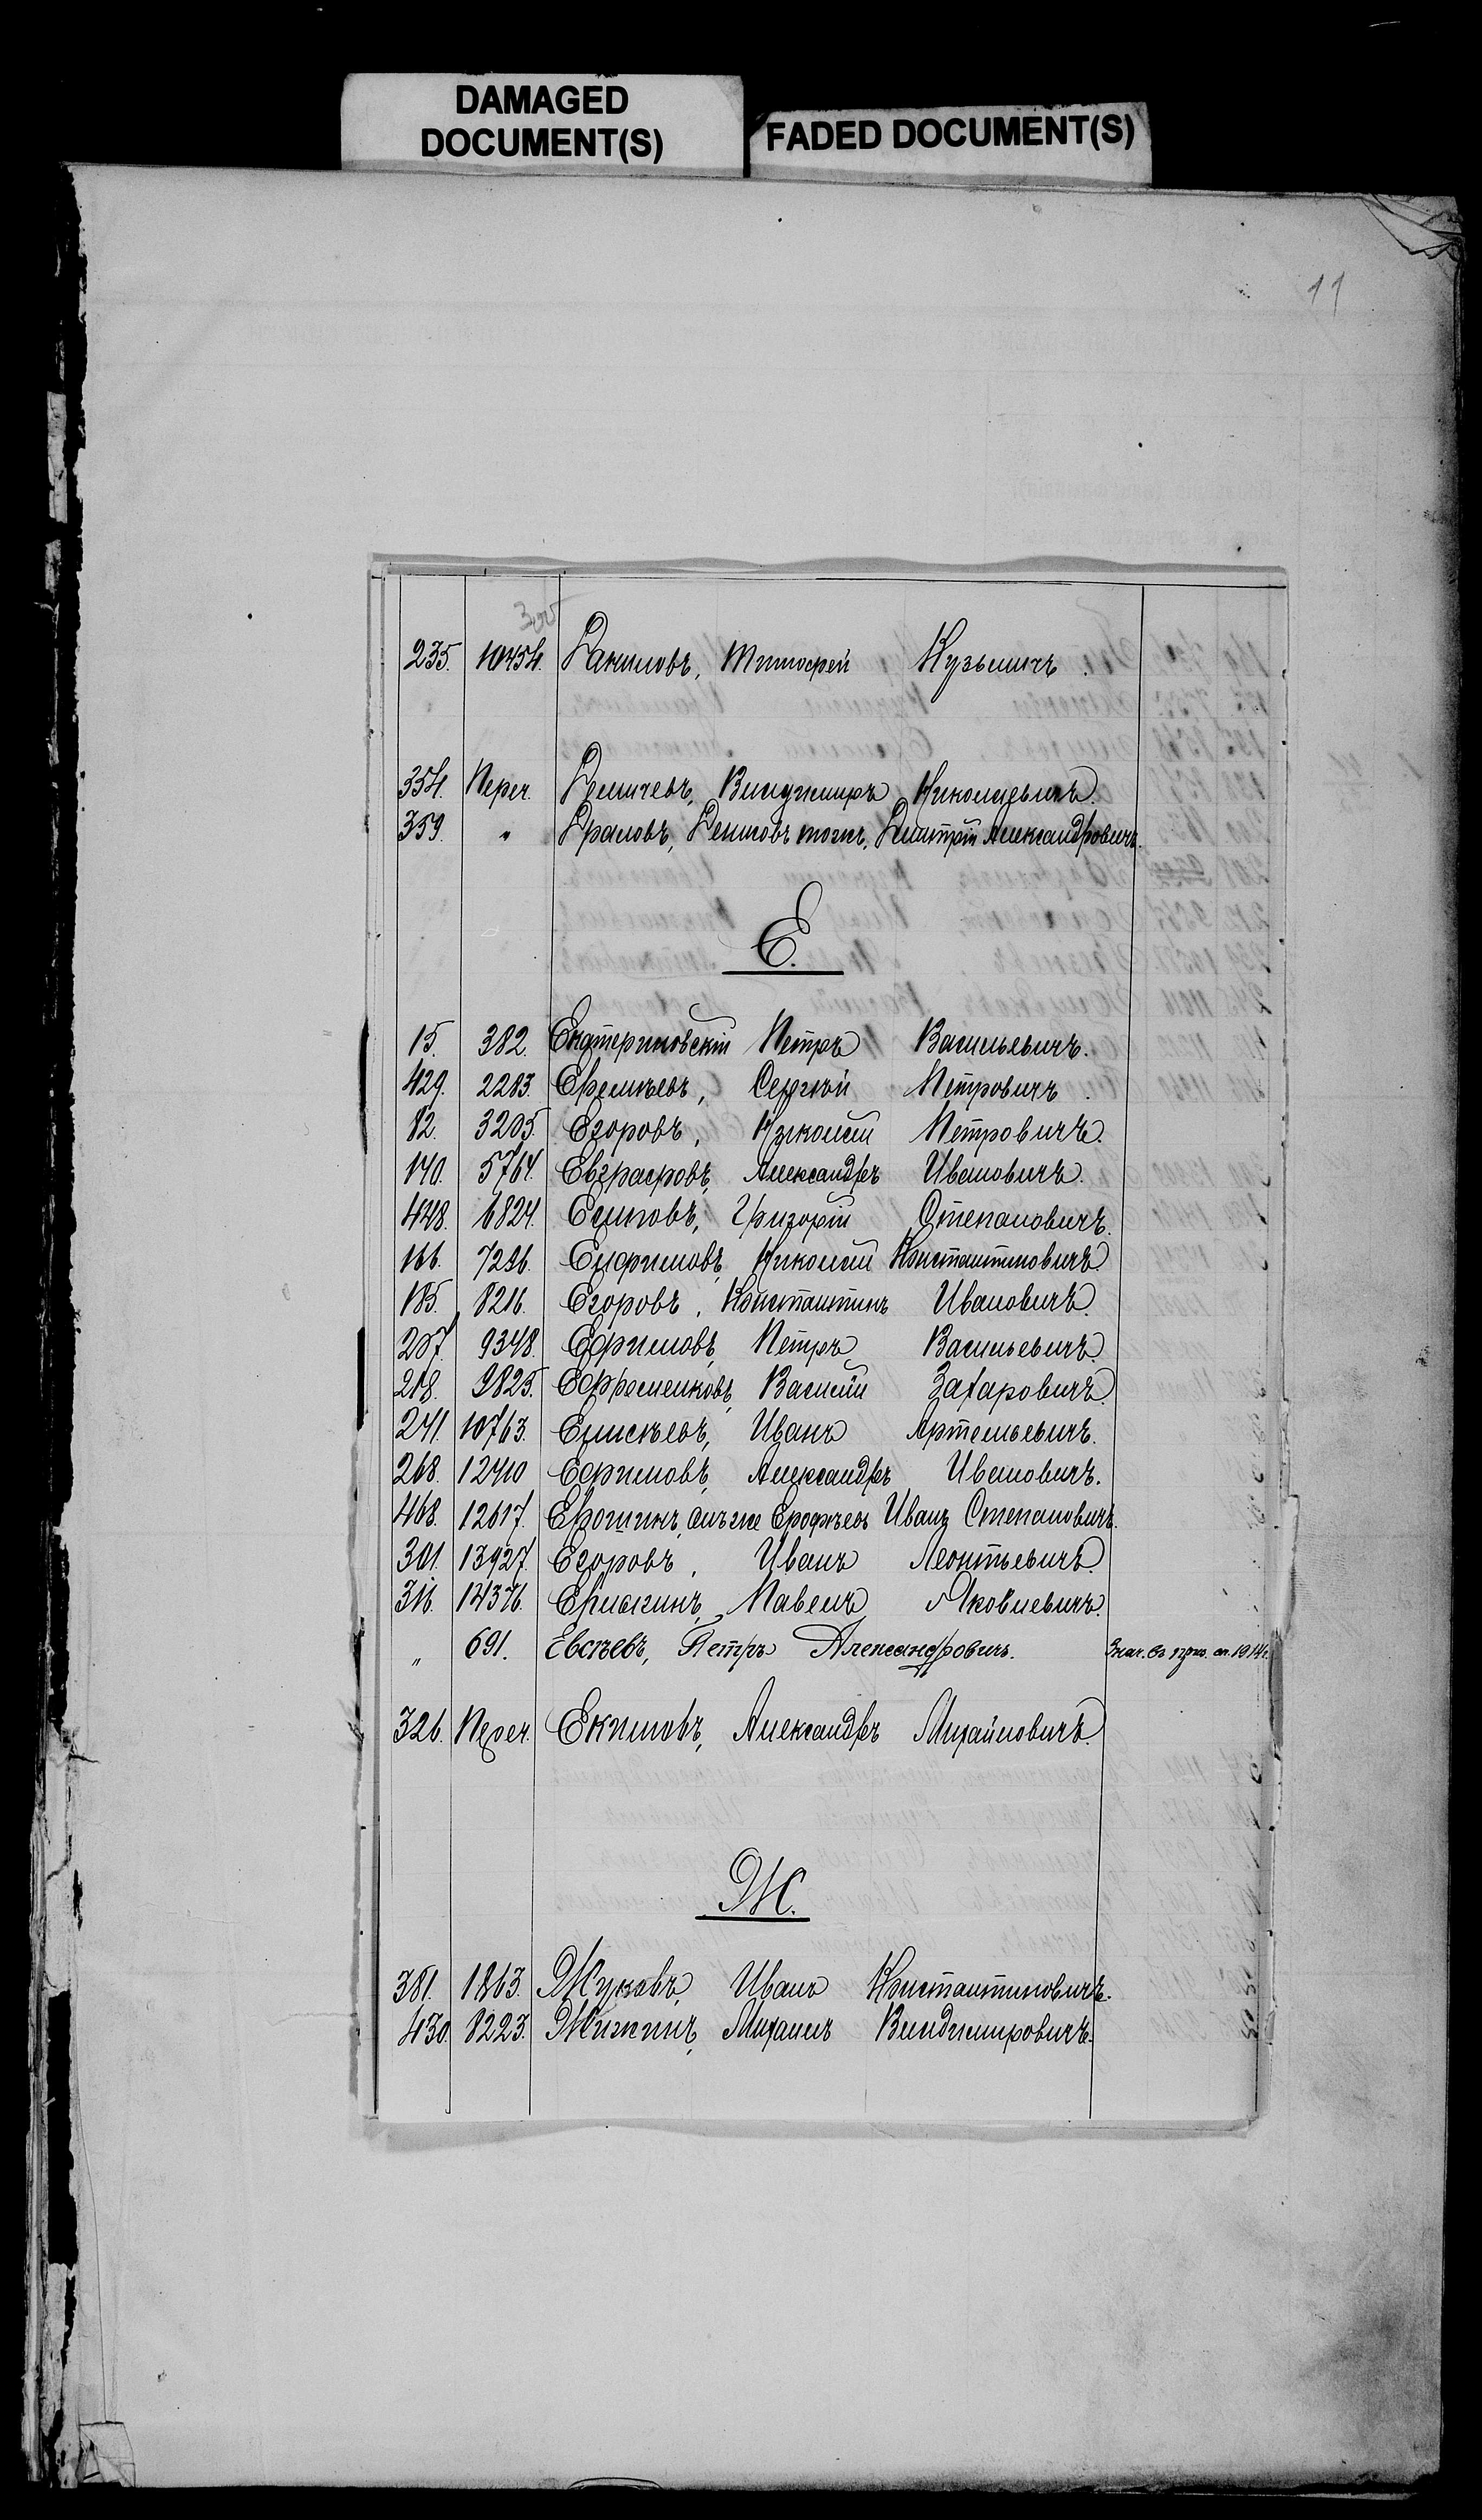 DAMAGED
DOCUMENT(S)
FADED DOCUMENT(S)
11
235. 10454. Даниловъ, Тимофей Кузьмичъ.
354. Переч. Демичевъ, Владимиръ Николаевичъ.
359. " Дмитрій Александровичъ.
Е.
15. 382. Екатериновскій Петръ Васильевичъ.
429. 2283. Еремѣевъ, Сергѣй Петровичъ.
82. 3205. Егоровъ, Николай Петровичъ.
140. 5764. Евграфовъ, Александръ Ивановичъ.
448. 6824. Есиповъ, Григорій Степановичъ.
166. 7296. Николай Константиновичъ
185. 8216. Егоровъ, Константинъ Ивановичъ.
207. 9348. Ефимовъ, Петръ Васильевичъ.
218. 9825. Ефременковъ, Василій Захаровичъ.
241. 10763. Елисѣевъ, Иванъ Артемьевичъ.
268. 12410 Ефимовъ, Александръ Ивановичъ.
468. 12617. Ерошинъ, онъ же Ерофѣевъ Иванъ Степановичъ.
301. 13927. Егоровъ, Иванъ Леонтьевичъ.
316. 14376. Павелъ Яковлевичъ.
" 691. Евсѣевъ, Петръ Александровичъ. 1914г.
326. Переч. Екимовъ, Александръ Михайловичъ.
Ж.
381. 1863. Жуковъ, Иванъ Константиновичъ.
430. 8223. Жижинъ, Михаилъ Владимировичъ.